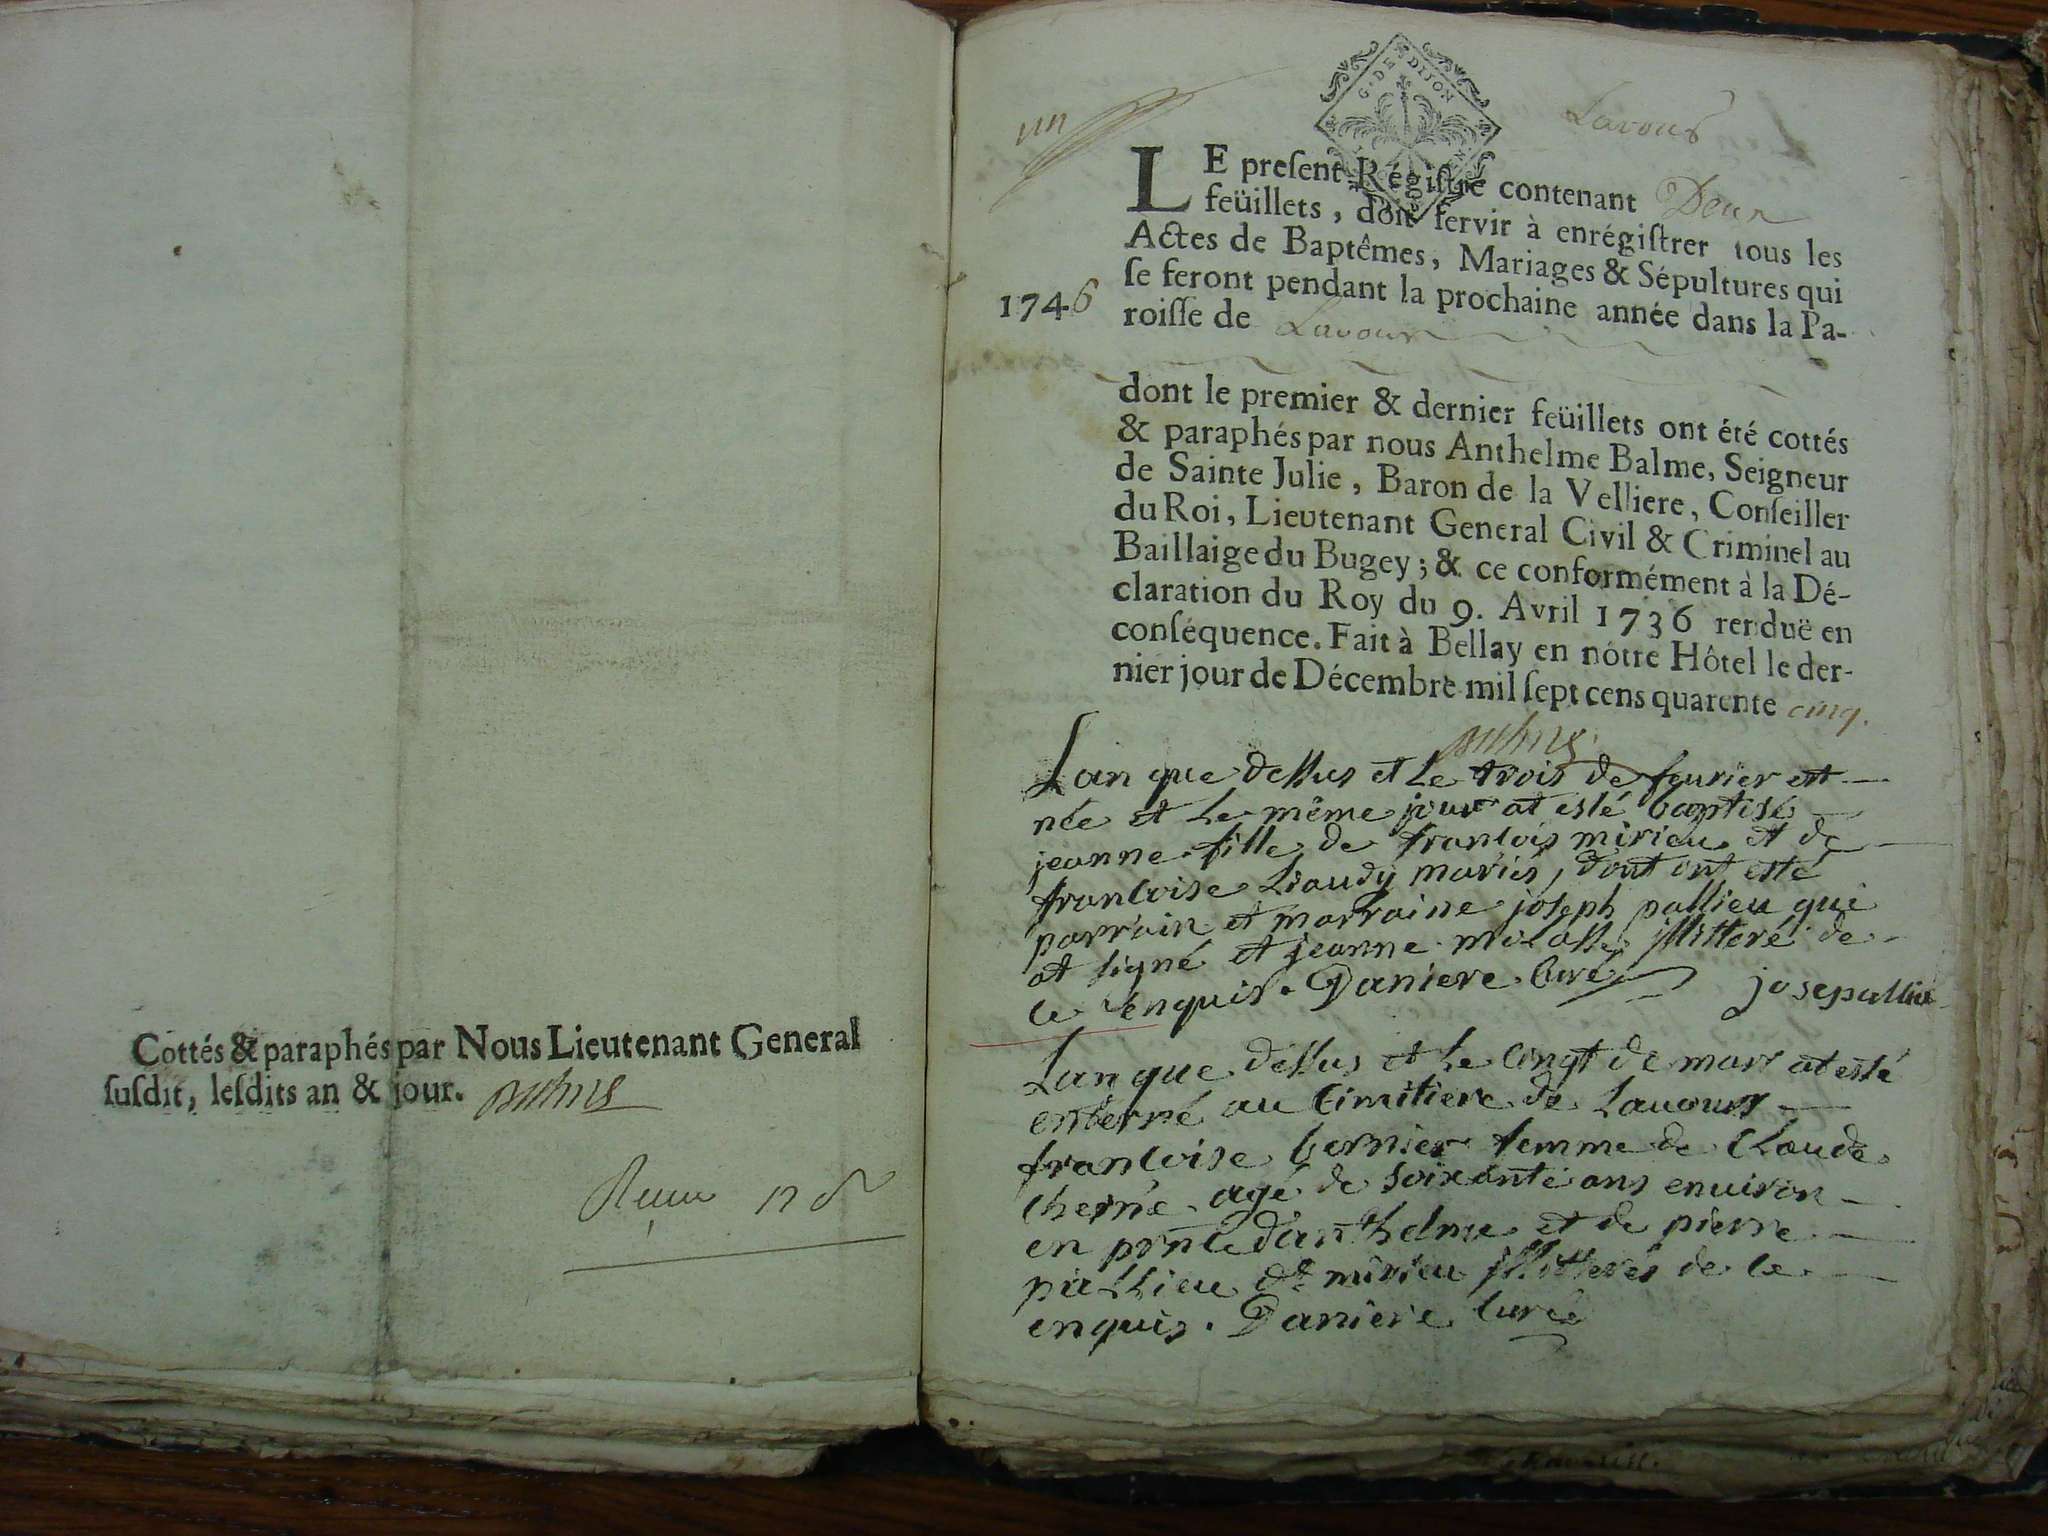 Cottés & paraphés par Nous Lieutenant General
susdit, lesdits an & jour.
un
G. DE DIJON
Lavours
LE present Régistre contenant Deux
feüillets, doit servir à enrégistrer tous les
Actes de Baptêmes, Mariages & Sépultures qui
se feront pendant la prochaine année dans la Pa-
1746
roisse de Lavours
dont le premier & dernier feüillets ont été cottés
& paraphés par nous Anthelme Balme, Seigneur
de Sainte Julie, Baron de la Velliere, Conseiller
du Roi, Lieutenant General Civil & Criminel au
Baillaige du Bugey; & ce conformément à la Dé-
claration du Roy du 9. Avril 1736 renduë en
conséquence. Fait à Bellay en nôtre Hôtel le der-
nier jour de Décembre mil sept cens quarente cinq.
Lan que dessus et le trois de feurier est
née et le même jour at esté baptisé
jeanne fille de francois mirieu et de
francoise Liaudy mariés, dont ont esté
parrain et marraine joseph pallieu qui
at signé et jeanne illitteré de
ce enquis. Daniere curé
josepallieu
Lan que dessus et le vingt de mars at esté
enterré au cimitiere de Lauours
francoise bernier femme de Claude
agé de soixante ans enuiron
en pnce danthelme et de pierre
pallieu dt mirieu illitterés de ce
enquis. Daniere curé